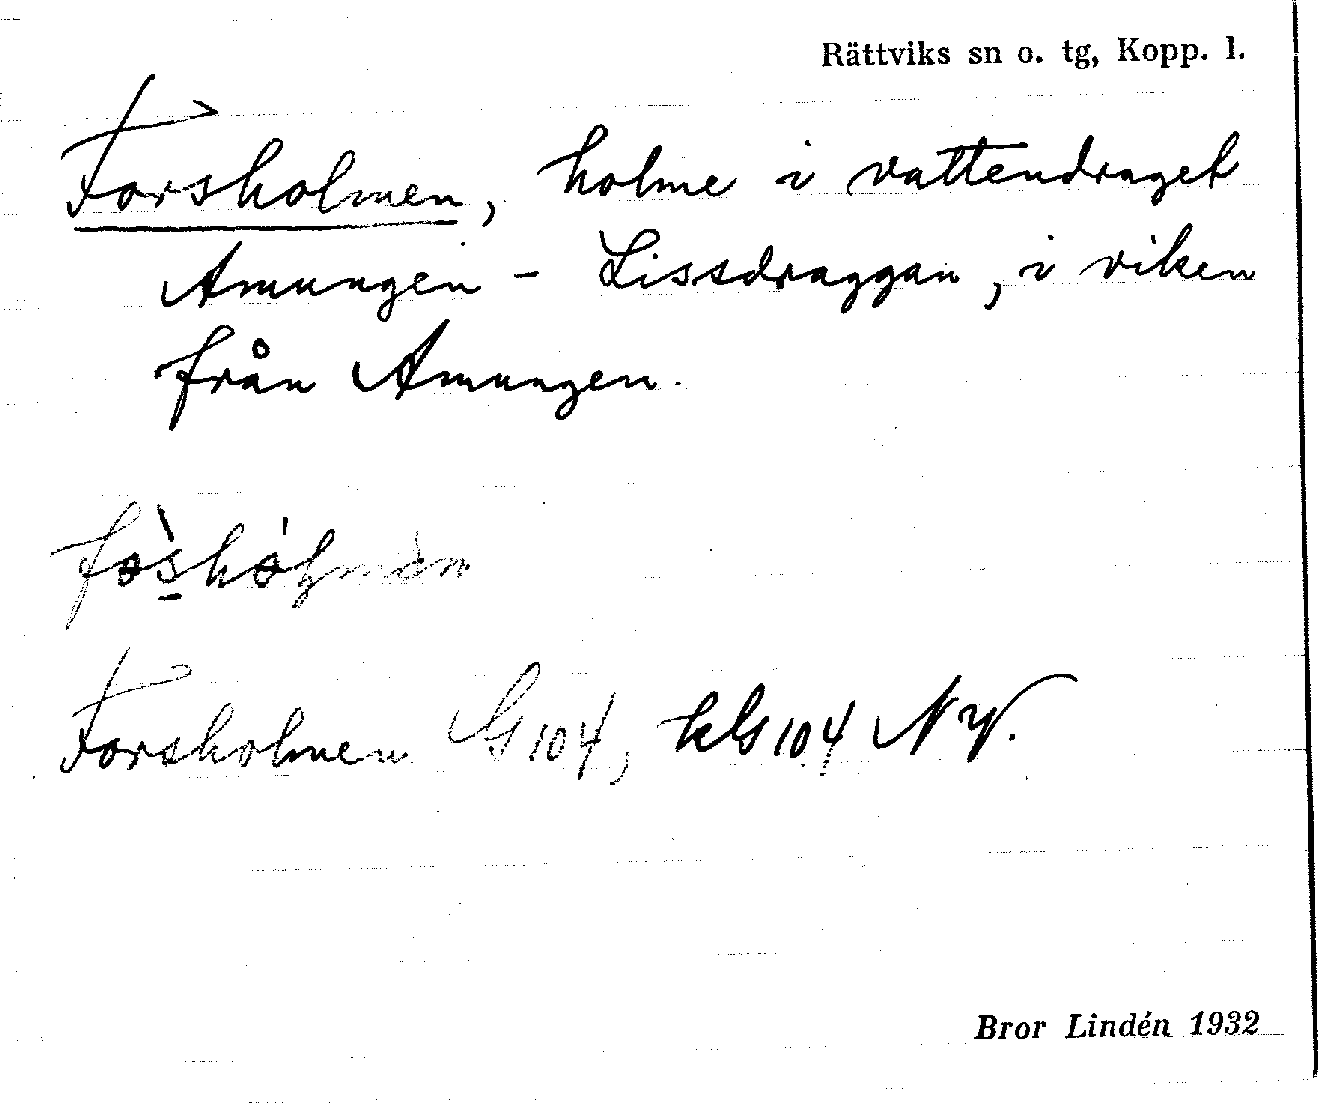 Rättviks sn o. tg, Kopp. l.
Forsholmen, holme i vattendraget
Amungen - Lissdraggan, i viken
från Amungen.
Forsholmen G 104, kG 104 NV.
Bror Lindén 1932